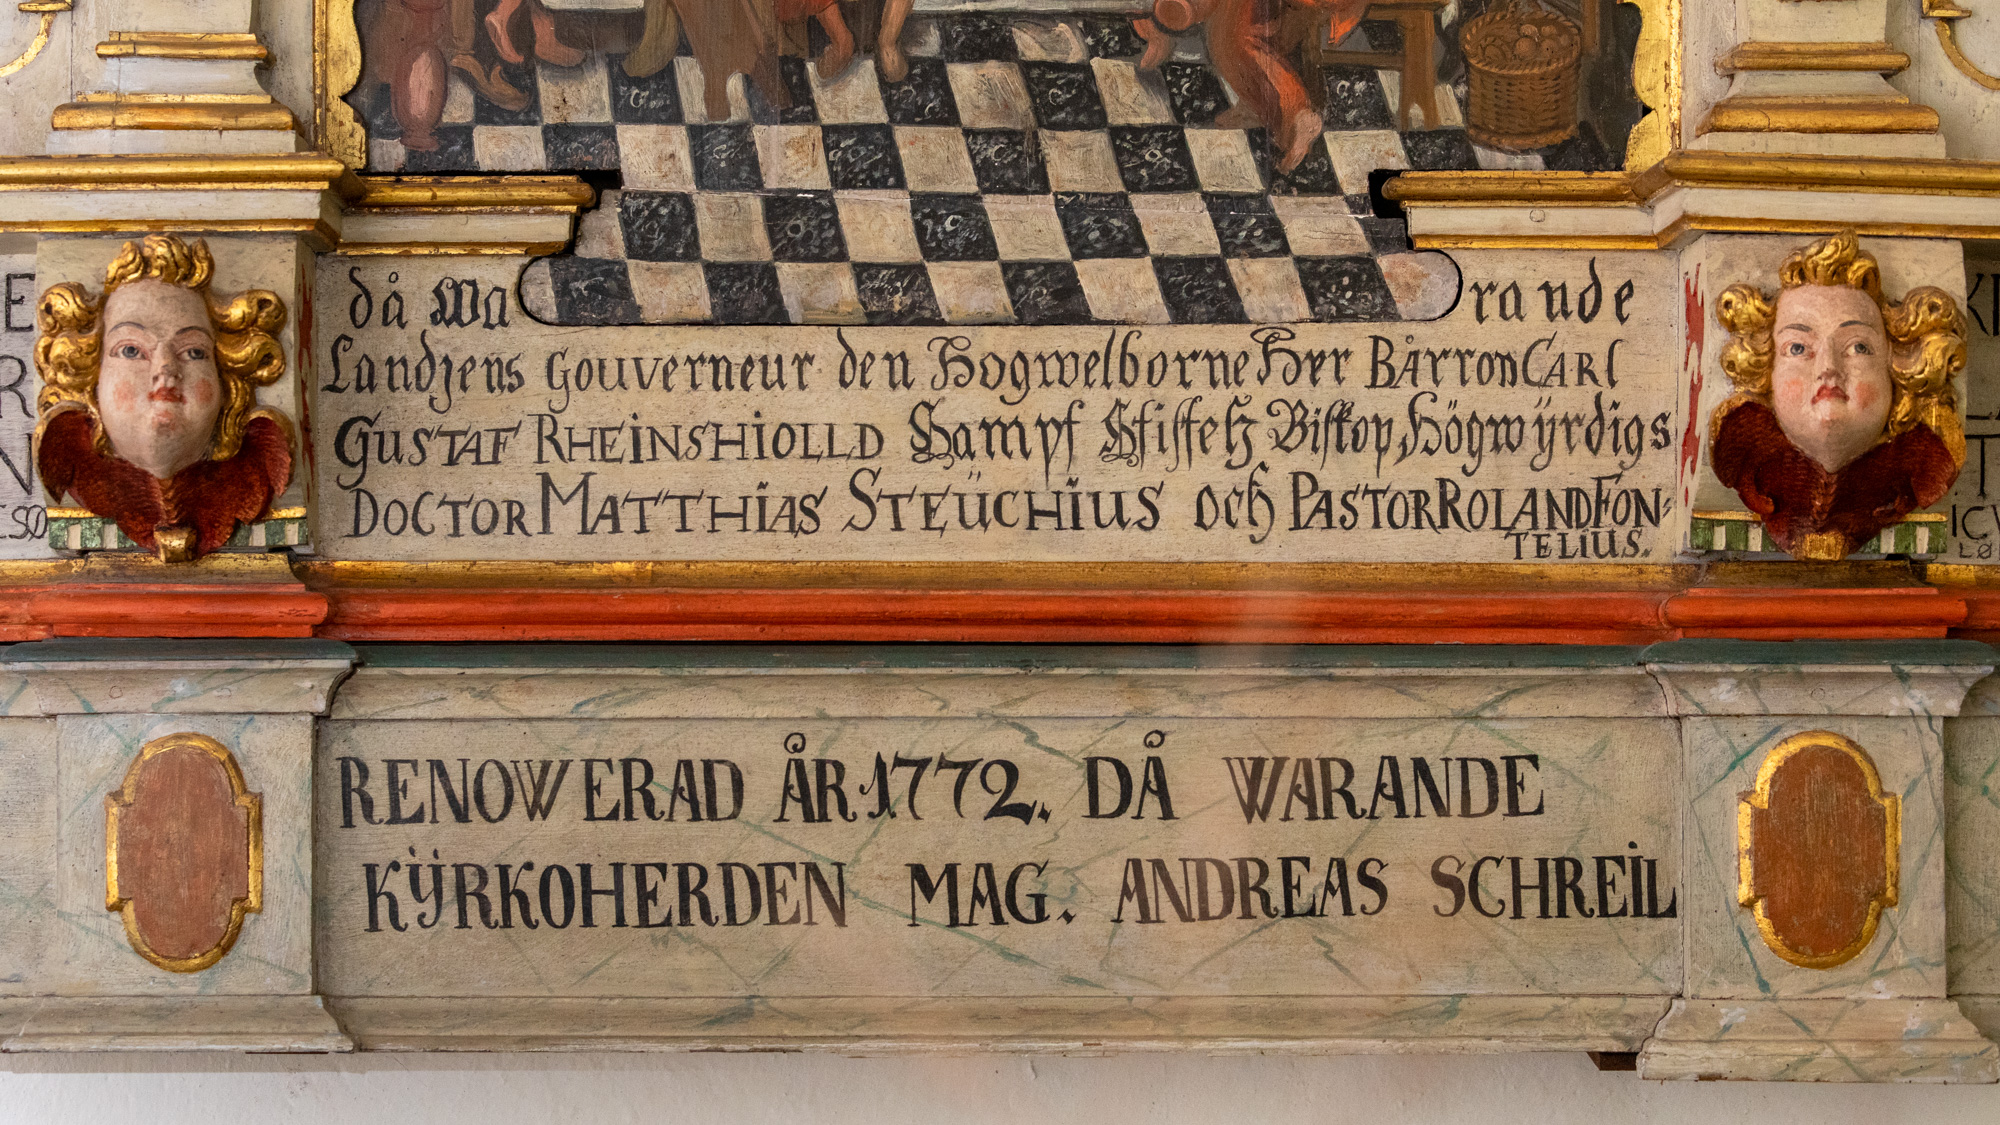 då wa rande
Landzens Gouverneur den Hogwelborne Her BårronCARl
GUSTAF RHEiNSHiOLLD Sampt Stifftetz Biskop, Högwÿrdigs
DOCTOR MATTHiAS STEÜCHiUS och PASTOR ROLAND FON-
TELiUS.
RENOWERAD ÅR 1772. DÅ WARANDE
KŸRKOHERDEN MAG. ANDREAS SCHREiL